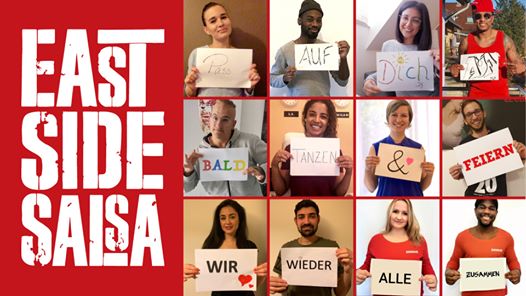 EAST
SIDE
SALSA
Pass
AUF
Dich
BALD
TANZEN
&
FEIERN
20
WIR
WIEDER
ALLE
ZUSAMMEN